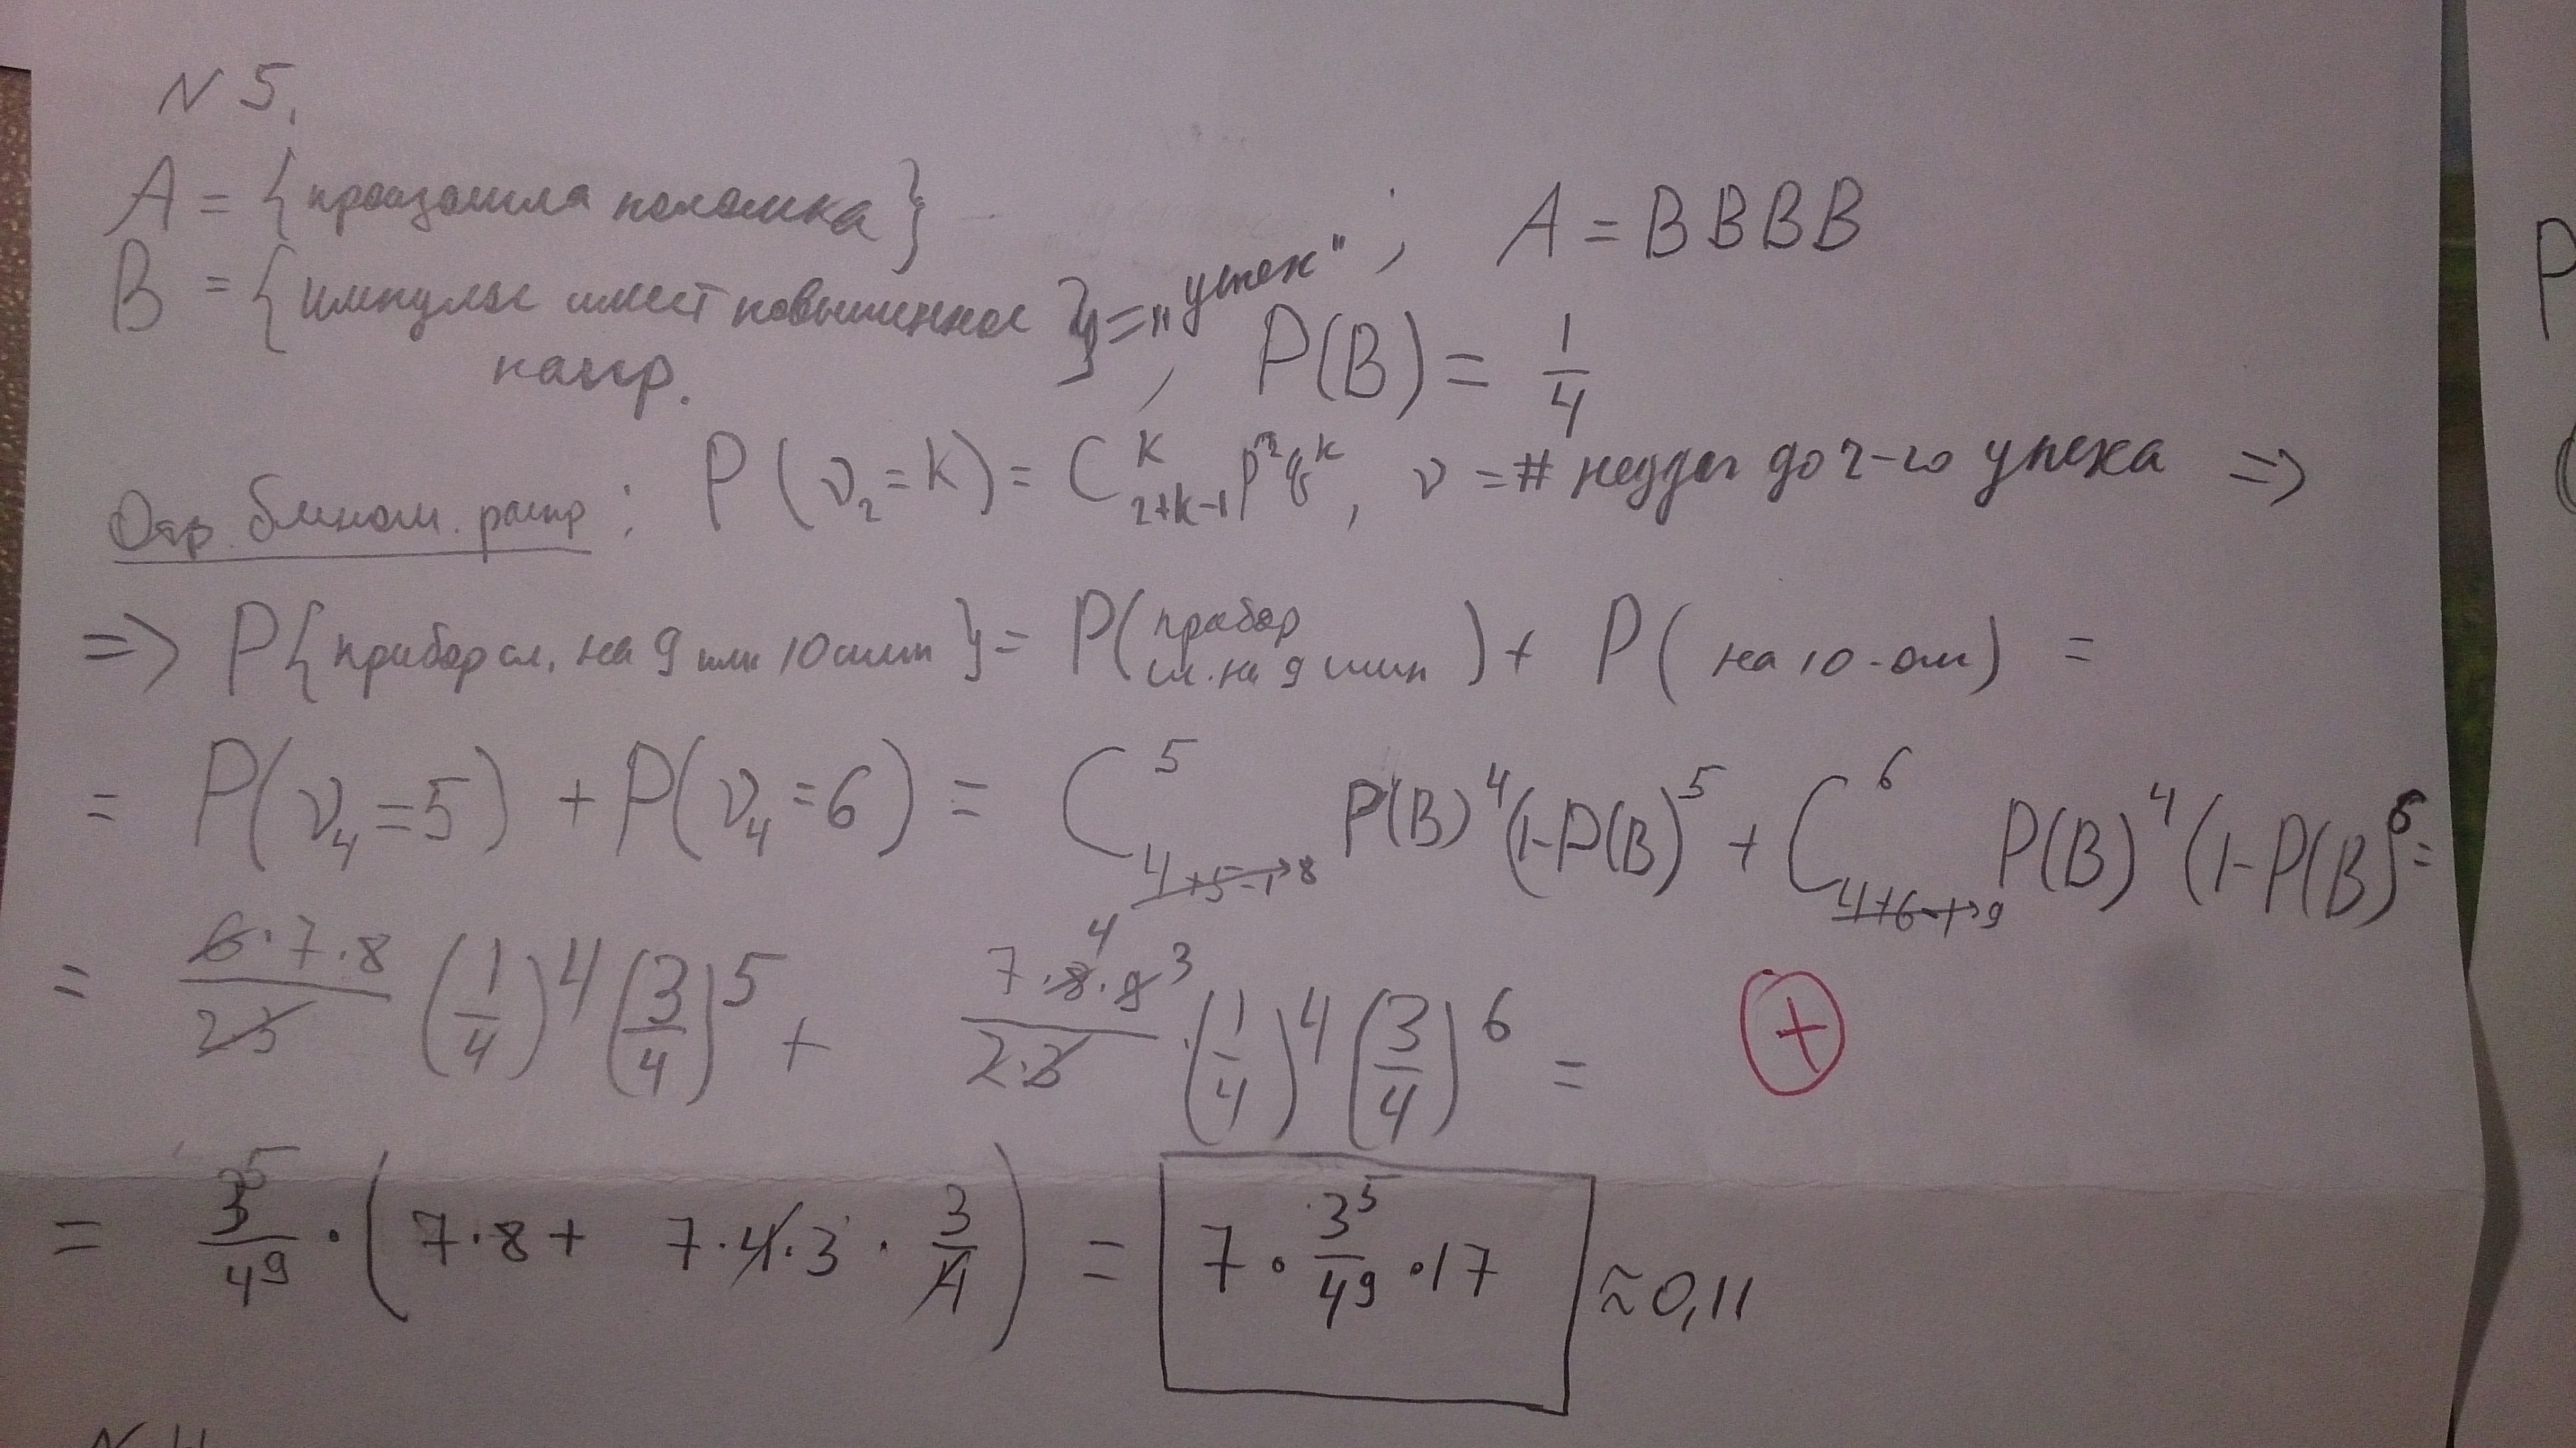 N 5.
A = { произошла поломка } ; A = B B B B
B = { импульс имеет повышенное напр. } = "успех" , P(B) = 1/4
Отр. бином. распр : P(ν₂ = k) = C^k_{2+k-1} p^2 q^k , ν = # неудач до r-го успеха =>
=> P{ прибор сл. на 9 или 10 имп } = P( прибор сл. на 9 имп ) + P( на 10-ом ) =
= P(ν₄ = 5) + P(ν₄ = 6) = C^5_{4+5-1→8} P(B)^4 (1-P(B)^5 + C^6_{4+6-1→9} P(B)^4 (1-P(B)^6 =
= 6·7·8/23 (1/4)^4 (3/4)^5 + 7·8·9/2·3 · (1/4)^4 (3/4)^6 = +
= 3^5/4^9 · ( 7·8 + 7·4·3 · 3/4 ) = 7 · 3^5/4^9 · 17 ≈ 0,11